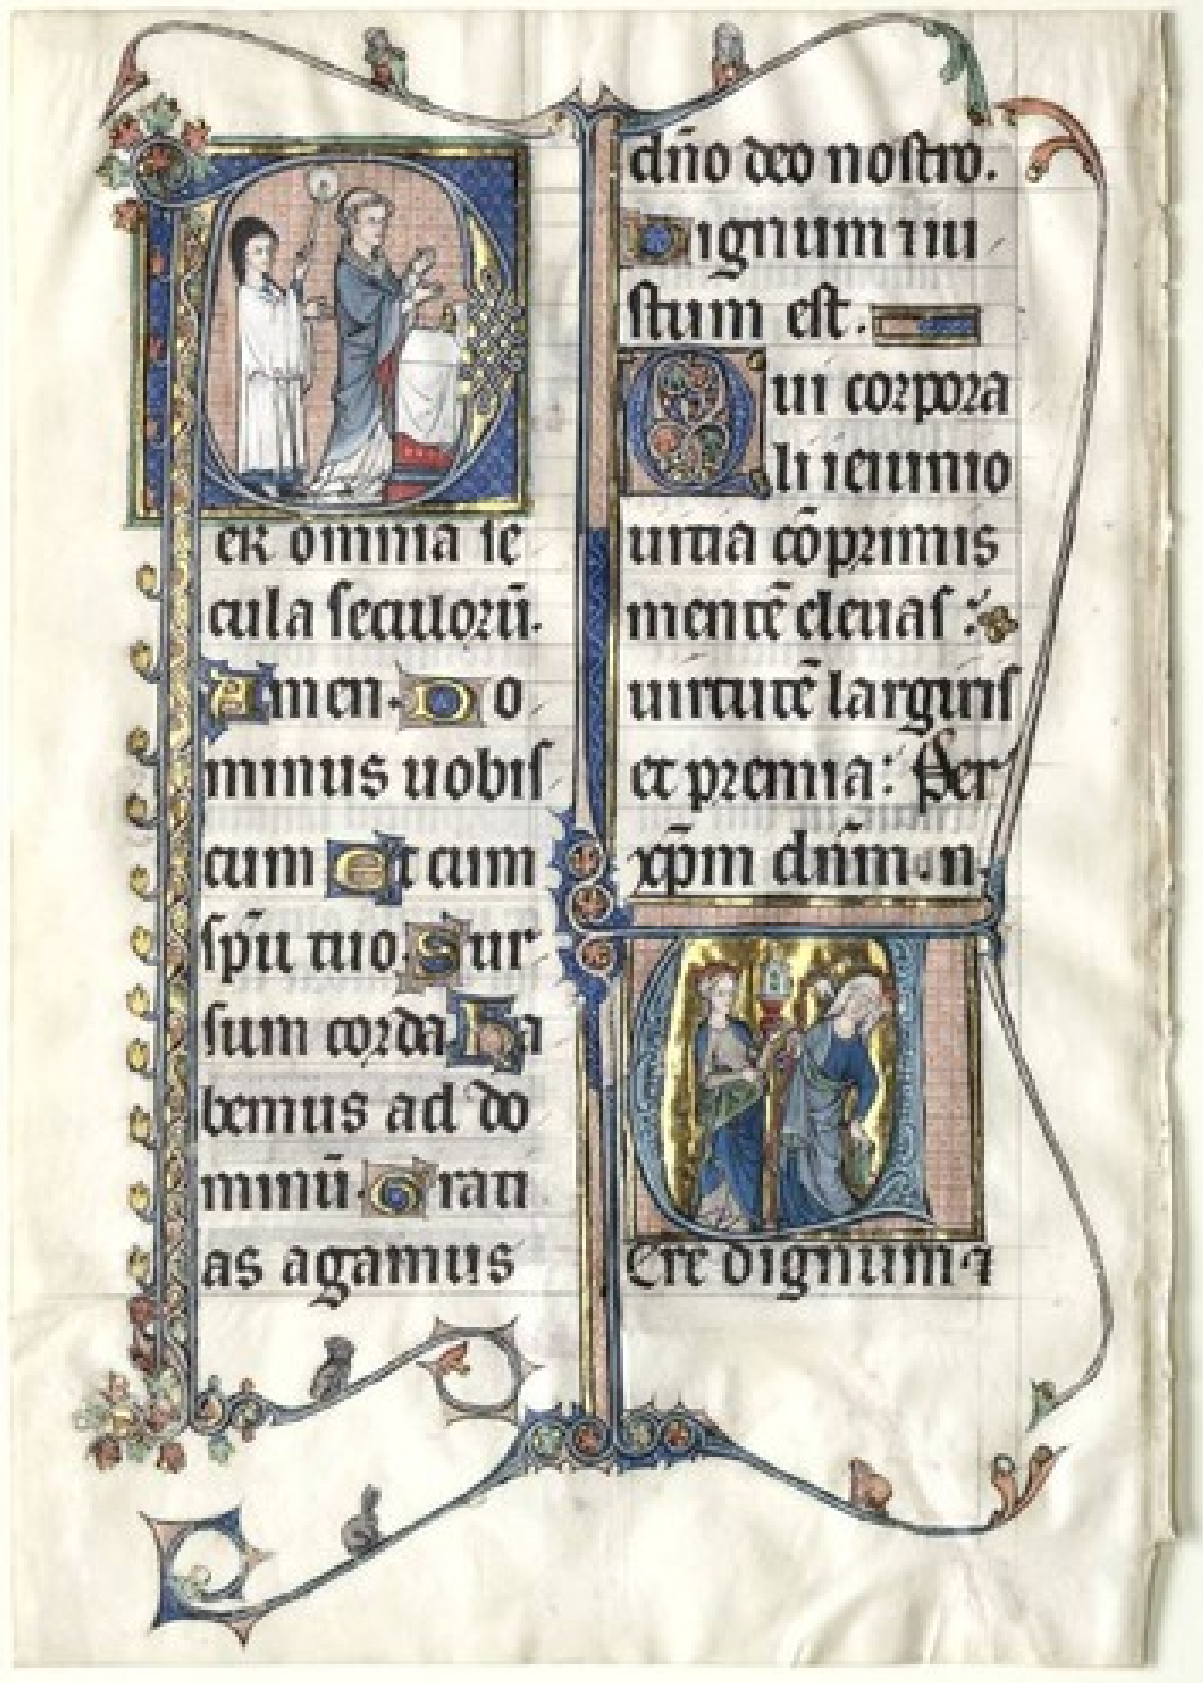 P
er omnia se
cula seculorū.
Amen. Do
minus uobis
cum Et cum
spū tuo. Sur
sum corda Ha
bemus ad do
minū. Grati
as agamus
dño deo nostro.
Dignum ⁊ iu
stum est.
Qui corpora
li ieiunio
uitia cōprimis
mentē eleuas
uirtutē largiris
et premia: Per
xp̄m dn̄m n
V
ere dignum ⁊